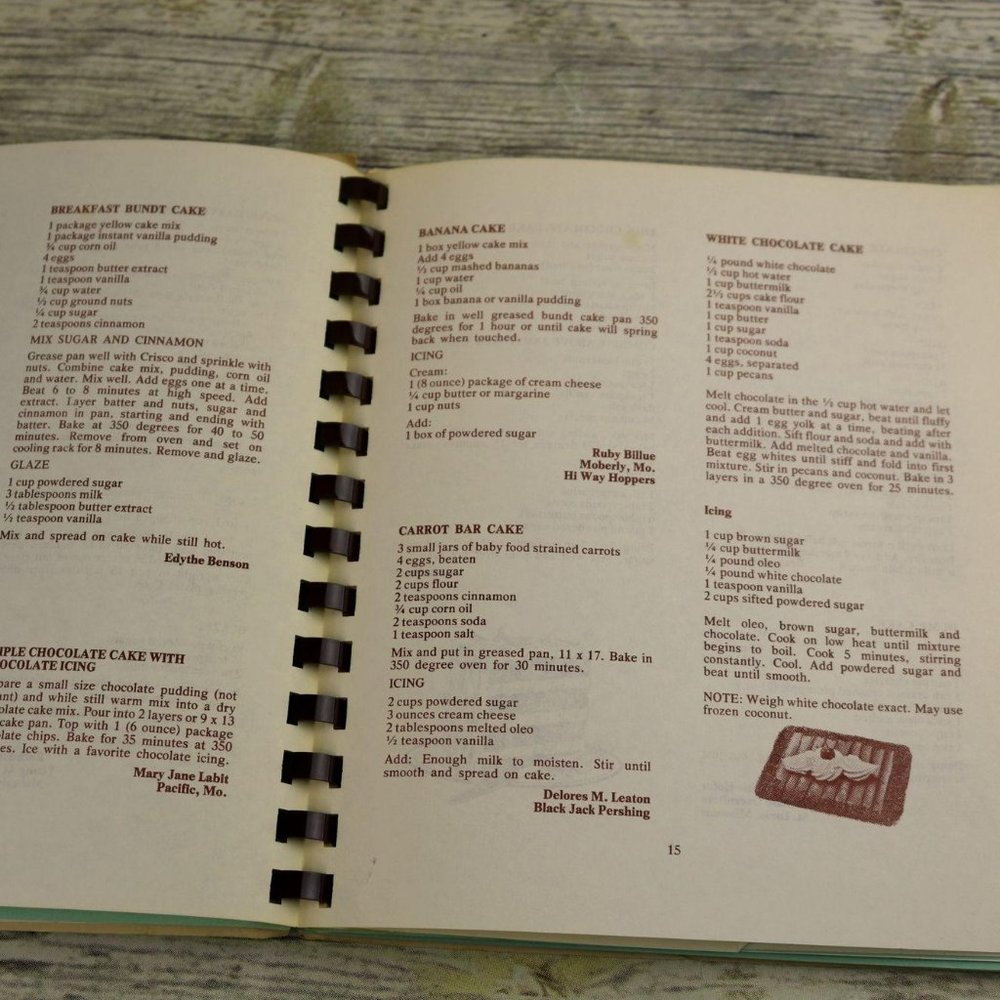 BREAKFAST BUNDT CAKE
1 package yellow cake mix
1 package instant vanilla pudding
¾ cup corn oil
4 eggs
1 teaspoon butter extract
1 teaspoon vanilla
¾ cup water
½ cup ground nuts
¼ cup sugar
2 teaspoons cinnamon
MIX SUGAR AND CINNAMON
Grease pan well with Crisco and sprinkle with
nuts. Combine cake mix, pudding, corn oil
and water. Mix well. Add eggs one at a time.
Beat 6 to 8 minutes at high speed. Add
extract. Layer batter and nuts, sugar and
cinnamon in pan, starting and ending with
batter. Bake at 350 degrees for 40 to 50
minutes. Remove from oven and set on
cooling rack for 8 minutes. Remove and glaze.
GLAZE
1 cup powdered sugar
3 tablespoons milk
½ tablespoon butter extract
½ teaspoon vanilla
Mix and spread on cake while still hot.
Edythe Benson
IPLE CHOCOLATE CAKE WITH
OCOLATE ICING
pare a small size chocolate pudding (not
ant) and while still warm mix into a dry
olate cake mix. Pour into 2 layers or 9 x 13
cake pan. Top with 1 (6 ounce) package
late chips. Bake for 35 minutes at 350
es. Ice with a favorite chocolate icing.
Mary Jane Labit
Pacific, Mo.
BANANA CAKE
1 box yellow cake mix
Add 4 eggs
½ cup mashed bananas
1 cup water
¼ cup oil
1 box banana or vanilla pudding
Bake in well greased bundt cake pan 350
degrees for 1 hour or until cake will spring
back when touched.
ICING
Cream:
1 (8 ounce) package of cream cheese
¼ cup butter or margarine
1 cup nuts
Add:
1 box of powdered sugar
Ruby Billue
Moberly, Mo.
Hi Way Hoppers
CARROT BAR CAKE
3 small jars of baby food strained carrots
4 eggs, beaten
2 cups sugar
2 cups flour
2 teaspoons cinnamon
¾ cup corn oil
2 teaspoons soda
1 teaspoon salt
Mix and put in greased pan, 11 x 17. Bake in
350 degree oven for 30 minutes.
ICING
2 cups powdered sugar
3 ounces cream cheese
2 tablespoons melted oleo
½ teaspoon vanilla
Add: Enough milk to moisten. Stir until
smooth and spread on cake.
Delores M. Leaton
Black Jack Pershing
15
WHITE CHOCOLATE CAKE
¼ pound white chocolate
½ cup hot water
1 cup buttermilk
2½ cups cake flour
1 teaspoon vanilla
1 cup butter
1 cup sugar
1 teaspoon soda
1 cup coconut
4 eggs, separated
1 cup pecans
Melt chocolate in the ½ cup hot water and let
cool. Cream butter and sugar, beat until fluffy
and add 1 egg yolk at a time, beating after
each addition. Sift flour and soda and add with
buttermilk. Add melted chocolate and vanilla.
Beat egg whites until stiff and fold into first
mixture. Stir in pecans and coconut. Bake in 3
layers in a 350 degree oven for 25 minutes.
Icing
1 cup brown sugar
¼ cup buttermilk
¼ pound oleo
¼ pound white chocolate
1 teaspoon vanilla
2 cups sifted powdered sugar
Melt oleo, brown sugar, buttermilk and
chocolate. Cook on low heat until mixture
begins to boil. Cook 5 minutes, stirring
constantly. Cool. Add powdered sugar and
beat until smooth.
NOTE: Weigh white chocolate exact. May use
frozen coconut.